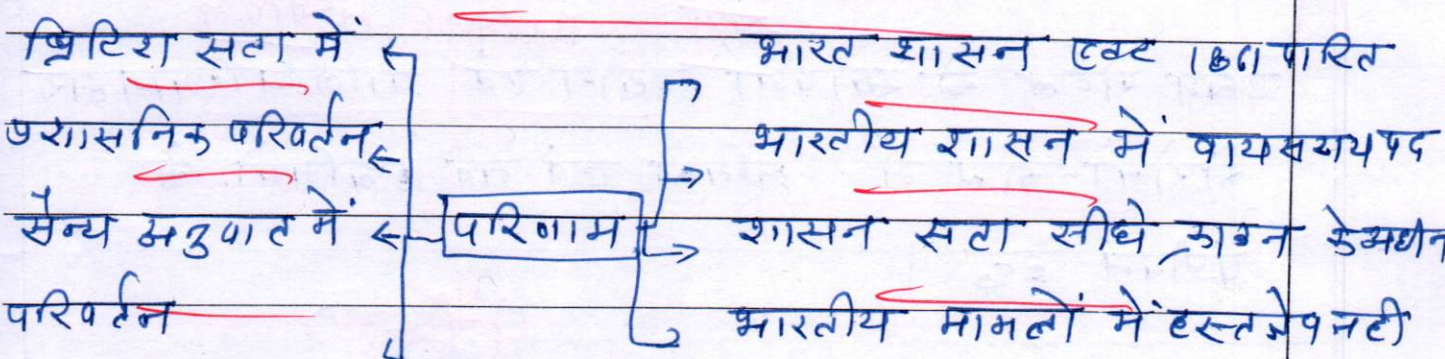 ब्रिटिश सता में
प्रशासनिक परिवर्तन
सैन्य अनुपात में
परिवर्तन
परिणाम
भारत शासन एक्ट 1861 पारित
भारतीय शासन में वायसराय पद
शासन सता सीधे क्राउन के अधीन
भारतीय मामलों में हस्तक्षेप नही